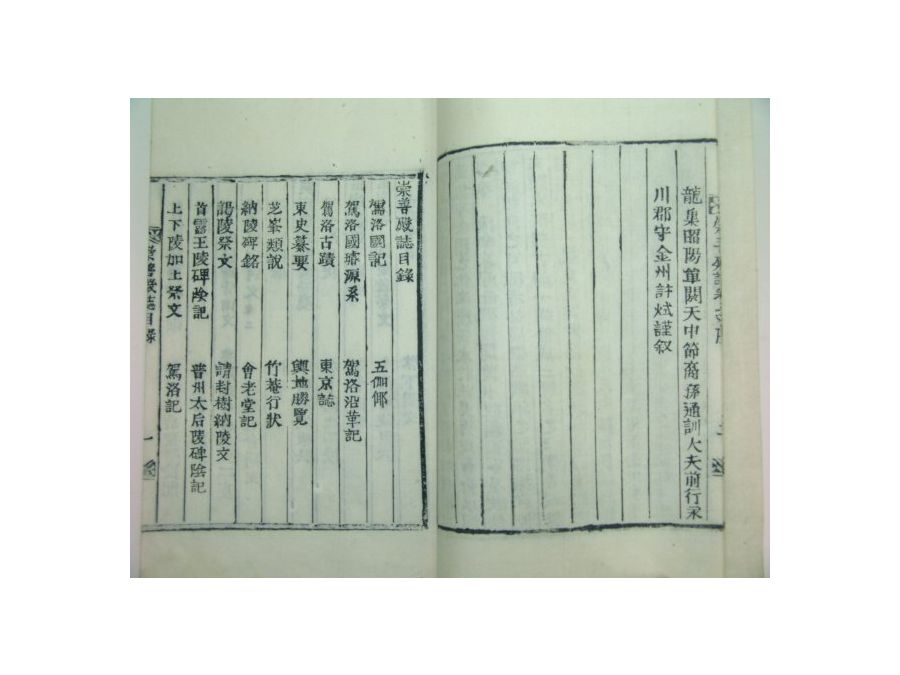 龍集昭陽單閼天中節裔孫通訓大夫前行永
川郡守金州許烒謹叙
崇善殿誌目錄
駕洛國記 五伽倻
駕洛國璿源系 駕洛沿革記
駕洛古蹟 東京誌
東史綦要 輿地勝覽
芝峯類說 竹菴行狀
納陵碑銘 會老堂記
謁陵祭文 請封樹納陵文
首露王陵碑陰記 普州太后陵碑陰記
上下陵加土祭文 駕洛記
崇善殿誌目錄 一